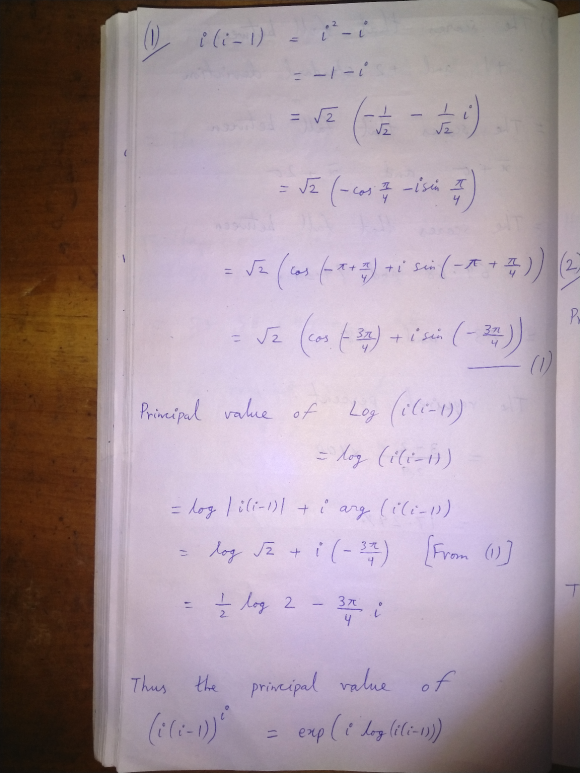 (1) i(i-1) = i² - i
= -1 - i
= √2 (-1/√2 - 1/√2 i)
= √2 (-cos π/4 - i sin π/4)
= √2 (cos (-π + π/4) + i sin (-π + π/4)) (2)
= √2 (cos (-3π/4) + i sin (-3π/4))
—— (1)
Principal value of Log (i(i-1))
= log (i(i-1))
= log |i(i-1)| + i arg (i(i-1))
= log √2 + i (-3π/4) [From (1)]
= 1/2 log 2 - 3π/4 i
Thus the principal value of
(i(i-1))^i = exp (i log (i(i-1)))